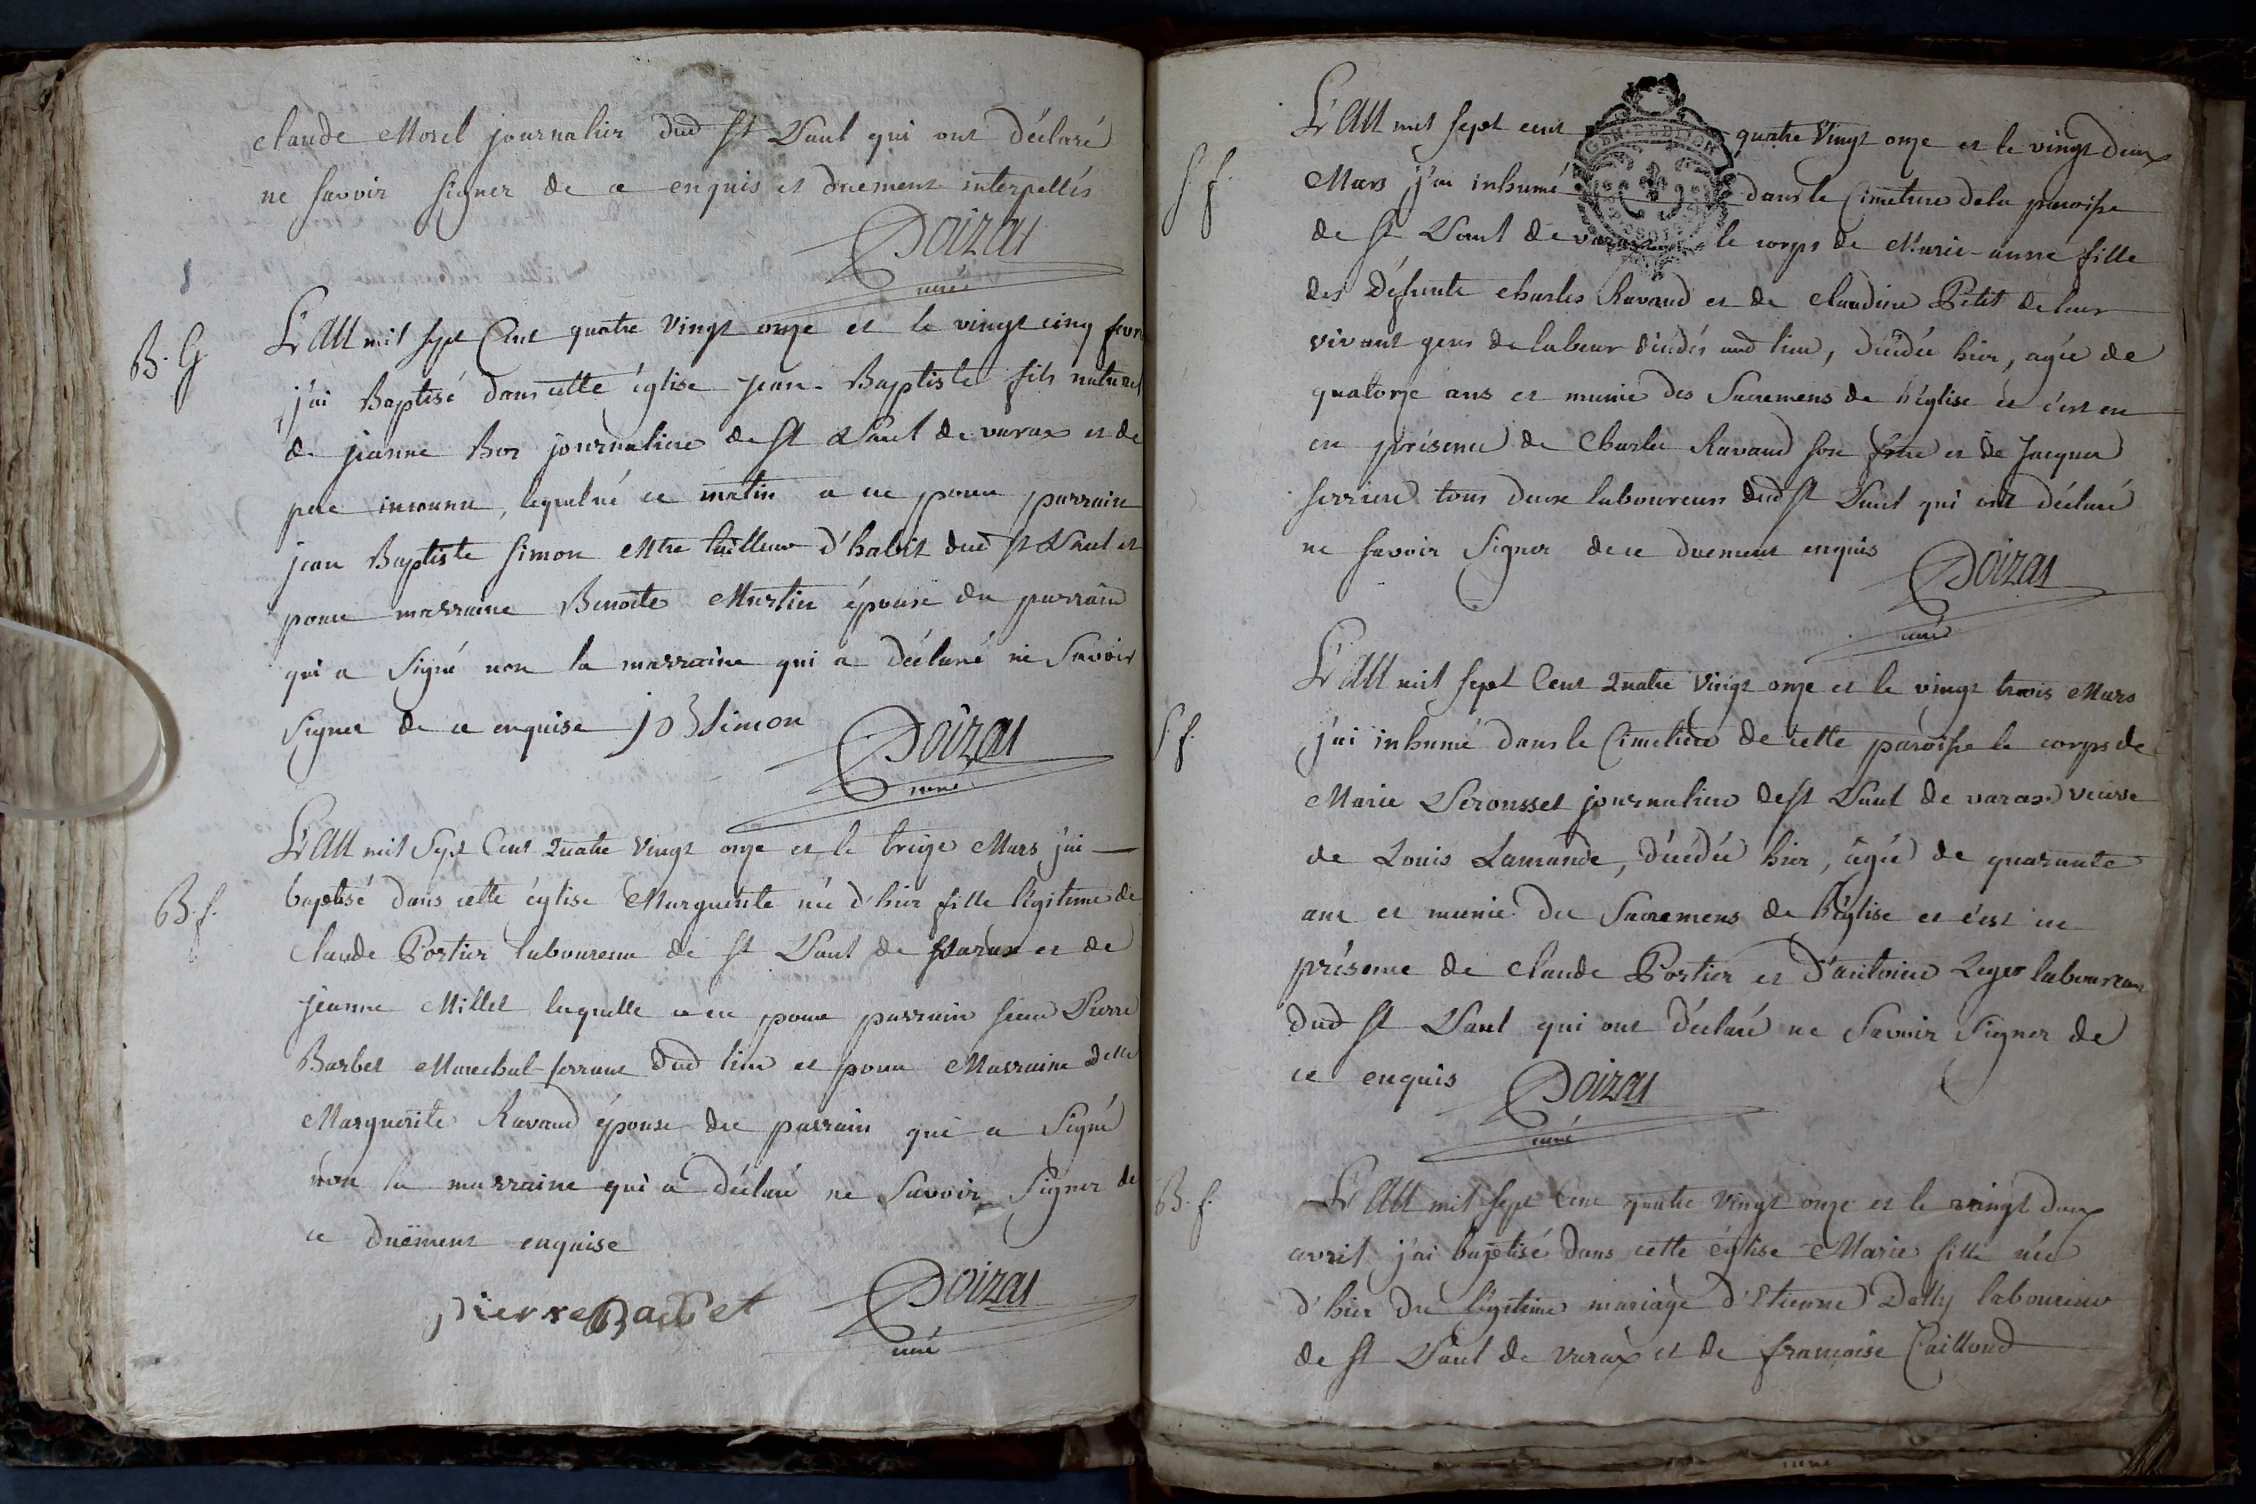 claude Morel journalier dud st Paul qui ont déclaré
ne savoir signer de ce enquis et duement interpellés
Doizat
curé
B. G
L'An mil sept Cent quatre vingt onze et le vingt cinq fevr
j'ai Baptisé dans cette église jean-Baptiste fils naturel
de jeanne Bor journaliere de st Paul de varax et de
pere inconnu, lequel né ce matin a eu pour parrain
jean Baptiste simon Mtre tailleur d'habit dud st Paul et
pour marraine Benoite Martin épouse du parrain
qui a signé non la marraine qui a déclaré ne savoir
signer de ce enquise JB simon
Doizat
curé
B. f.
L'An mil sept Cent Quatre vingt onze et le treize Mars j'ai
baptisé dans cette église Marguerite née d'hier fille légitime de
Claude Portier laboureur de st Paul de Varax et de
jeanne Millet laquelle a eu pour parrain sieur Pierre
Barbet Marechal ferrant dud lieu et pour Marraine delle
Marguerite Ravaud épouse du parrain qui a signé
non la marraine qui a déclaré ne savoir signer de
ce duëment enquise
pierre Barbet
Doizat
curé
S. f.
L'An mil sept cent quatre vingt onze et le vingt deux
GEN. DE DIJON
Mars j'ai inhumé dans le Cimetiere de la paroisse
de st Paul de varax le corps de Marie-anne fille
des défunts charles Ravaud et de claudine Petit de leur
vivant gens de labeur aud lieu, décédée hier, agée de
quatorze ans et munie des Sacremens de l'église et c'est en
en présence de Charles Ravaud son frere et de Jacques
ferriere tous deux laboureurs dud st Paul qui ont déclaré
ne savoir signer de ce duement enquis
Doizat
curé
S. f.
L'An mil sept Cent Quatre vingt onze et le vingt trois Mars
j'ai inhumé dans le Cimetiere de cette paroisse le corps de
Marie Perousset journaliere de st Paul de varax veuve
de Louis Lamande, décédée hier, âgée de quarante
ans et munie des Sacremens de l'église et c'est en
présence de claude Portier et d'antoine Leger laboureurs
dud st Paul qui ont déclaré ne savoir signer de
ce enquis
Doizat
curé
B. f.
L'An mil sept Cent quatre vingt onze et le vingt deux
avril j'ai baptisé dans cette église Marie fille née
d'hier du légitime mariage d'Etienne laboureur
de st Paul de varax et de francoise Caillond